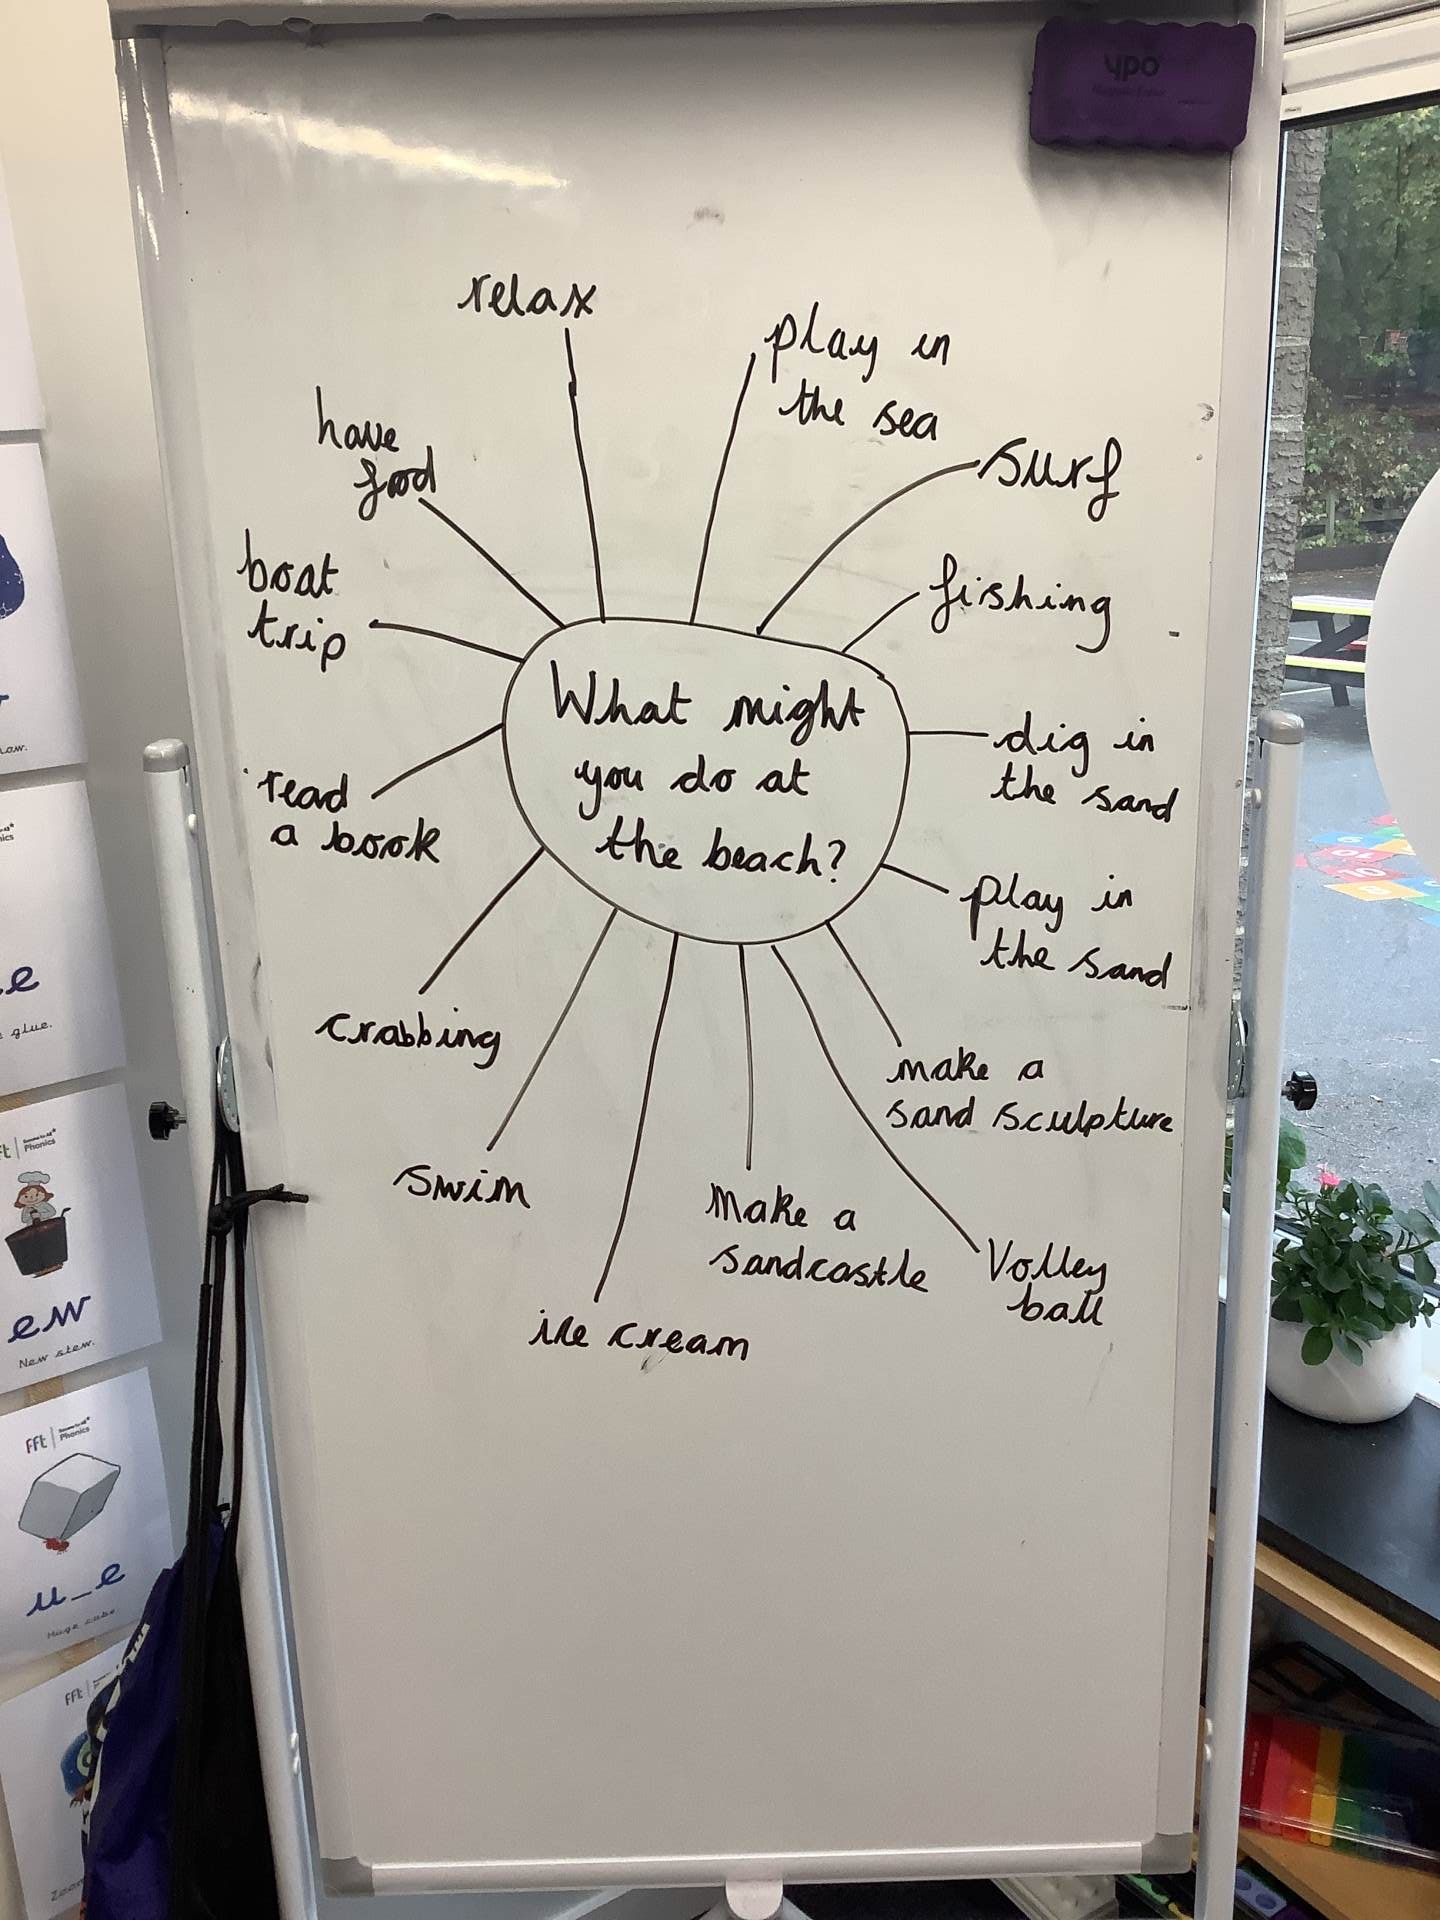 ypo
relax
play in
the sea
have
food
surf
boat
trip
fishing
What might
you do at
the beach?
dig in
the sand
read
a book
play in
the sand
crabbing
make a
sand sculpture
swim
make a
sandcastle
Volley
ball
ice cream
glue.
fft
Phonics
ew
New stew.
fft
Phonics
u_e
Huge cube
fft